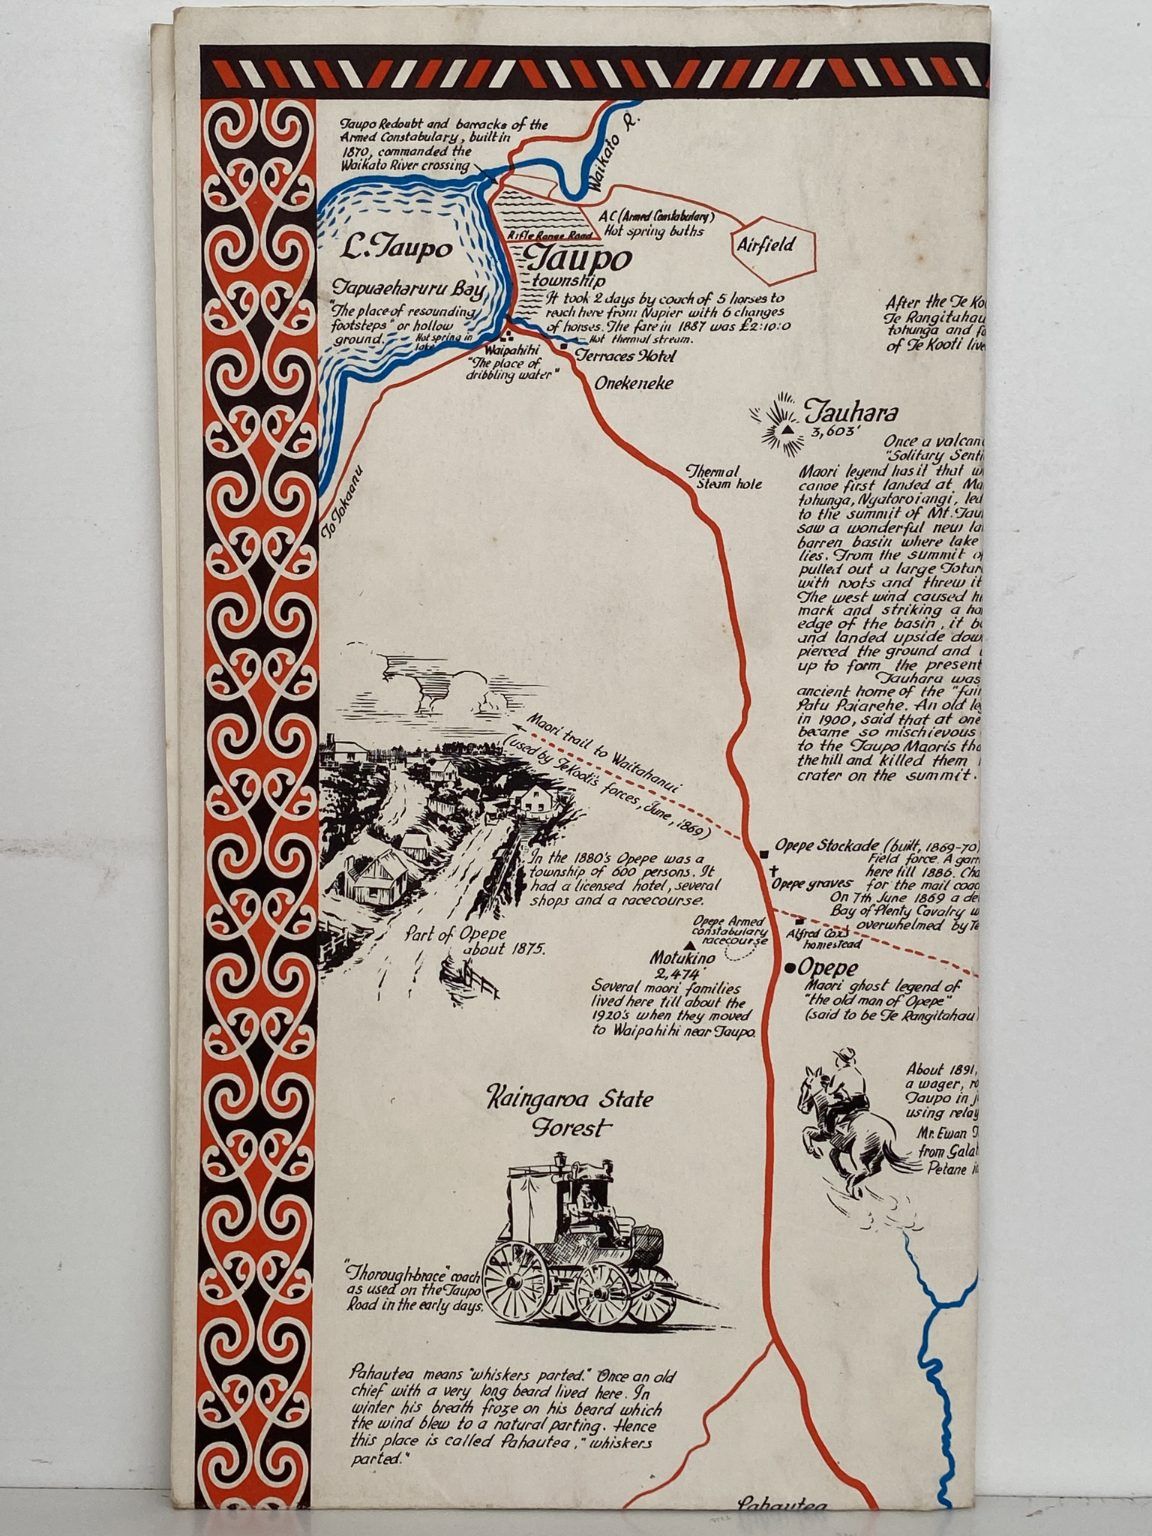 Taupo Redoubt and barracks of the
Armed Constabulary, built in
1870, commanded the
Waikato River crossing
Waikato R.
L. Taupo
Tapuaeharuru Bay
"The place of resounding
footsteps" or hollow
ground.
Hot spring in
lake
Rifle Range Road
A C (Armed Constabulary)
Hot spring baths
Airfield
Taupo
township
It took 2 days by coach of 5 horses to
reach here from Napier with 6 changes
of horses. The fare in 1887 was £2:10:0
Hot thermal stream.
Waipahihi
"The place of
dribbling water"
Terraces Hotel
Onekeneke
After the Te Ko
Te Rangitahau
tohunga and
of Te Kooti live
To Tokaanu
Thermal
Steam hole
Tauhara
3,603'
Once a valcan
"Solitary Senti
Maori legend has it that
canoe first landed at Ma
tohunga, Ngatoroiangi, led
to the summit of Mt. Tau
saw a wonderful new la
barren basin where lake
lies. From the summit
pulled out a large Totar
with roots and threw it
The west wind caused
mark and striking a ha
edge of the basin, it b
and landed upside dow
pierced the ground and
up to form the present
Tauhara was
ancient home of the "fair
Patu Paiarehe. An old le
in 1900, said that at one
became so mischievous
to the Taupo Maoris tha
the hill and killed them
crater on the summit.
Maori trail to Waitahanui
(used by Te Kooti's forces, June, 1869)
In the 1880's Opepe was a
township of 600 persons. It
had a licensed hotel, several
shops and a racecourse.
Part of Opepe
about 1875.
Opepe Stockade (built, 1869-70)
Field force. A garr
here till 1886. Cha
Opepe graves
for the mail coac
On 7th June 1869 a de
Bay of Plenty Cavalry
overwhelmed by Te
Alfred Cox's
homestead
Opepe Armed
constabulary
racecourse
Motukino
2,474'
Several maori families
lived here till about the
1920's when they moved
to Waipahihi near Taupo.
Opepe
Maori ghost legend of
"the old man of Opepe"
(said to be Te Rangitahau)
About 1891,
a wager, ro
Taupo in
using relay
Mr. Ewan
from Galat
Petane
Kaingaroa State
Forest
"Thorough-brace" coach
as used on the Taupo
Road in the early days.
Pahautea means "whiskers parted." Once an old
chief with a very long beard lived here. In
winter his breath froze on his beard which
the wind blew to a natural parting. Hence
this place is called Pahautea, "whiskers
parted."
Pahautea